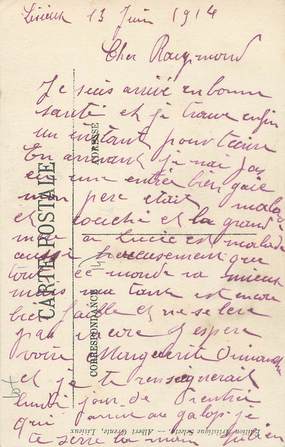 Lisieux 13 Juin 1914
Cher Raymond
Je suis arrivé en bonne
santé et je trouve enfin
un instant pour t'ecrire
En arrivant je n'ai pas
eu une entrée bien gaie
mon pere etait malade
et couché et la grand
mere a Lucie est malade
aussi heureusement que
tout ce monde va mieux
mais ma tante est encore
bien faible et ne se leve
pas encore J'espere
voire Marguerite Dimanche
et je te renseignerait
lundi jour de
qui au galop je
te serre la main
CARTE POSTALE
CORRESPONDANCE
ADRESSE
Edition Artistique — Albert Lisieux